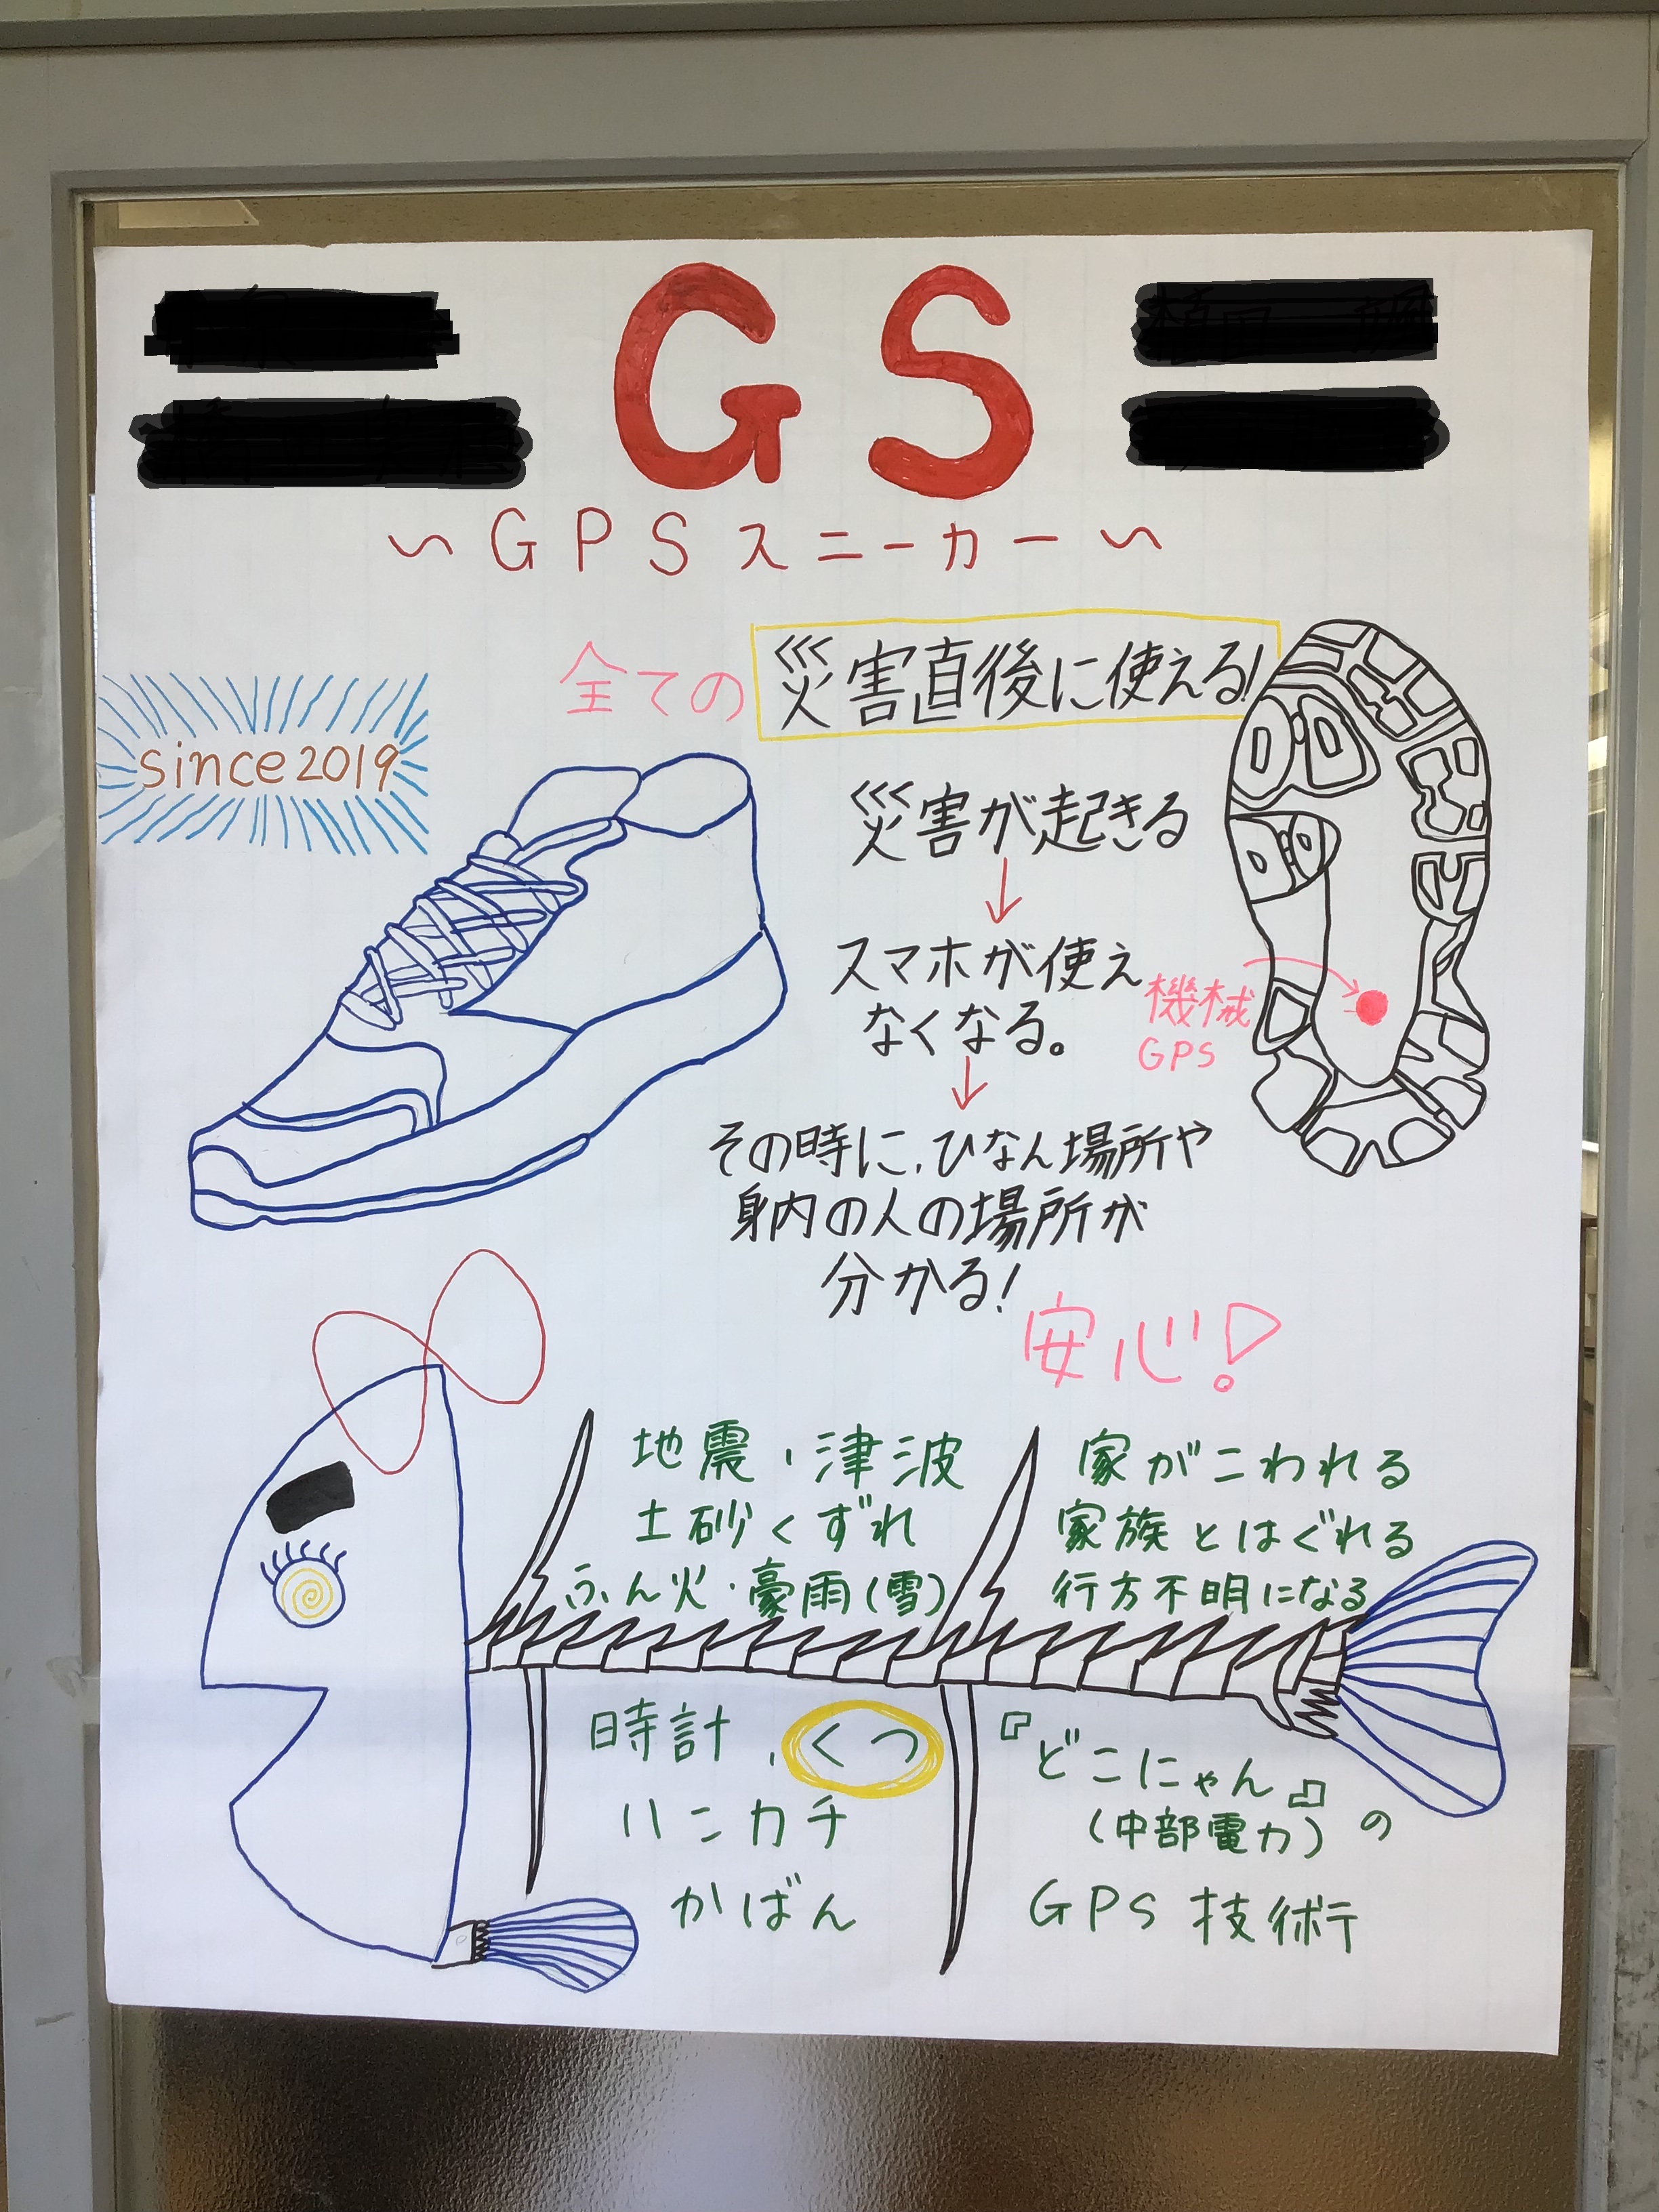 GS
～GPSスニーカー～
全ての災害直後に使える!
since2019
災害が起きる
↓
スマホが使え
なくなる。
機械
GPS
↓
その時に、ひなん場所や
身内の人の場所が
分かる!
安心!
地震・津波
土砂くずれ
ふん火・豪雨(雪)
家がこわれる
家族とはぐれる
行方不明になる
時計、くつ
ハンカチ
かばん
『どこにゃん』
(中部電力)の
GPS技術